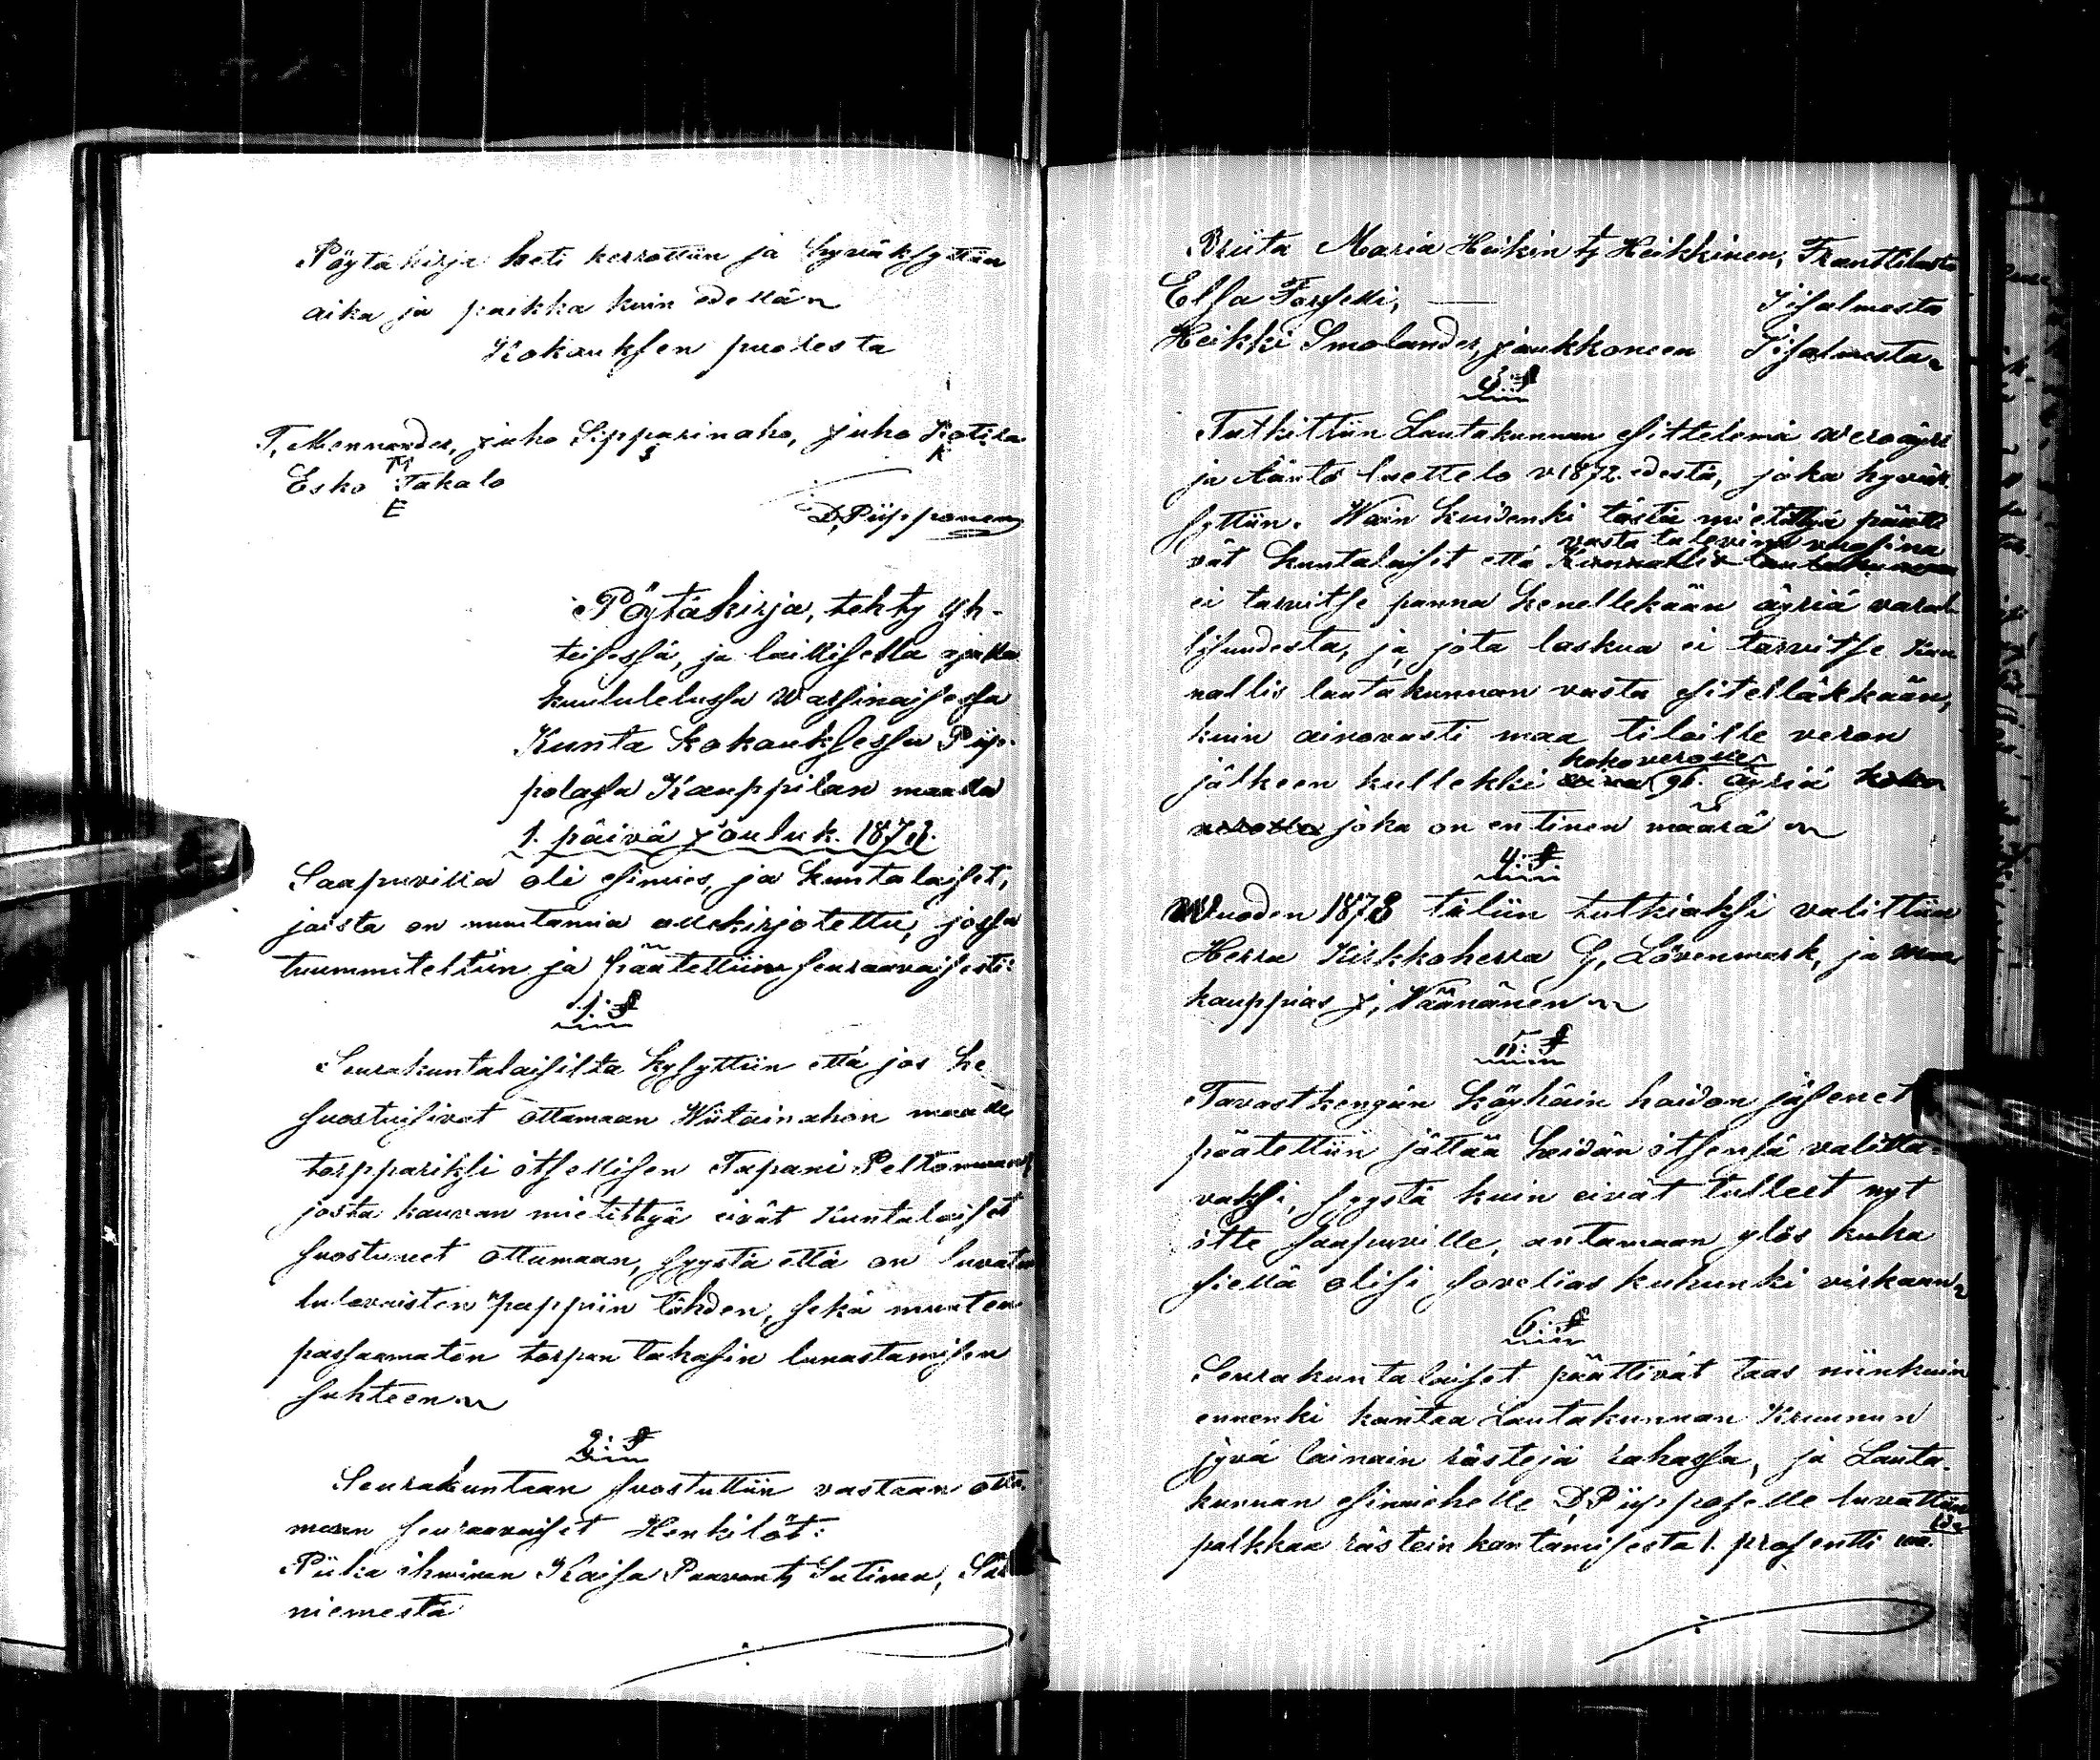 Pöytäkirja heti kerrottiin ja hyväksyttiin
aika ja paikka kuin edellän
Kokouksen puolesta
T, Mennander, Juho Sipparinaho, Juho Kotila
Esko Takalo
D, Piipponen
Pöytäkirja, tehty yh-
teisessä, ja laillisella ajalla
kuululetussa Warsinaisessa
Kunta kokouksessa Piip-
polassa Kauppilan maalla
1. päivä Jouluk. 1872.
Saapuvilla oli esimies, ja kuntalaiset,
joista on muutamia allekirjotettu, jossa
tuummiteltiin ja päätettiin seuraavaisesti:
1. §
Seurakuntalaisilta kysyttiin että jos he
suostuisivat ottamaan Wiitainahon maalle
torppariksi itsellisen Tapani Peltomaan,
josta kauvan mietittyä eivät Kuntalaiset
suostuneet ottamaan, syystä että on luvatu
tulevaisten pappiin tähden, sekä muuten
passaamaton torpan takasin lunastamisen
suhteen
2. §
Seurakuntaan suostuttiin vastaan otta-
maan seuraavaiset Henkilöt:
Piika ihminen Kaisa Paavont; Sutinen,
niemestä
Briita Maria Heikin t; Heikkinen, Franttilasta
Elsa Forselli, Iisalmesta
Heikki Smolander, Joukkoneen Iisalmesta
3. §
Tutkittiin Lautakunnan esittelemä veroäyri
ja ääntö luettelo v 1872. edestä, joka hyväk-
syttiin. Wain kuidenki tästä mietittyä päätti-
vasta tulevina vuosina
vät kuntalaiset että Kunnallis lautakunnan
ei tarvitse panna kenellekään äyriä varal-
lisuudesta, ja jota laskua ei tarvitse Kun-
nallis lautakunnan vasta esitelläkkään,
kuin ainovasti maa tiloille veron
kokoverolle
jälkeen kullekki 96. äyriä koko
verolle joka on entinen määrä
4. §
Wuoden 1873 tiliin tutkiaksi valittiin
Herra Kirkkoherra G, Lövenmark, ja maa
kauppias J, Väänänen
5. §
Tavastkengän köyhäin hoidon jäsenet
päätettiin jättää heidän itsensä valitta-
vaksi, syystä kuin eivät tulleet nyt
itte saapuville, antamaan ylös kuka
siellä olisi sovelias kuhunki virkaan
6. §
Seurakuntalaiset päättivät taas niinkuin
ennenki kantaa Lautakunnan Kruunun
jyvä lainain rästejä rahassa, ja Lauta-
kunnan esimiehelle D, Piipposelle luvattiin
palkkaa rästein kantamisesta 1. prosentti